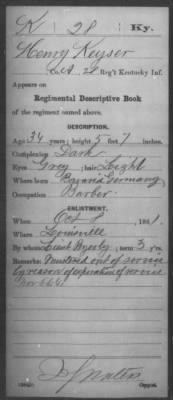 K 28 Ky.
Henry Keyser
Co. K, 28 Reg't Kentucky Inf.
Appears on
Regimental Descriptive Book
of the regiment named above.
DESCRIPTION.
Age 34 years; height 5 feet 7 inches.
Complexion Dark
Eyes Grey; hair Light
Where born Germany
Occupation Barber
ENLISTMENT.
When Oct 8, 1861.
Where Louisville
By whom Lieut ; term 3 y'rs.
Remarks: Mustered out of service
by reason of expiration of service
Copyist.